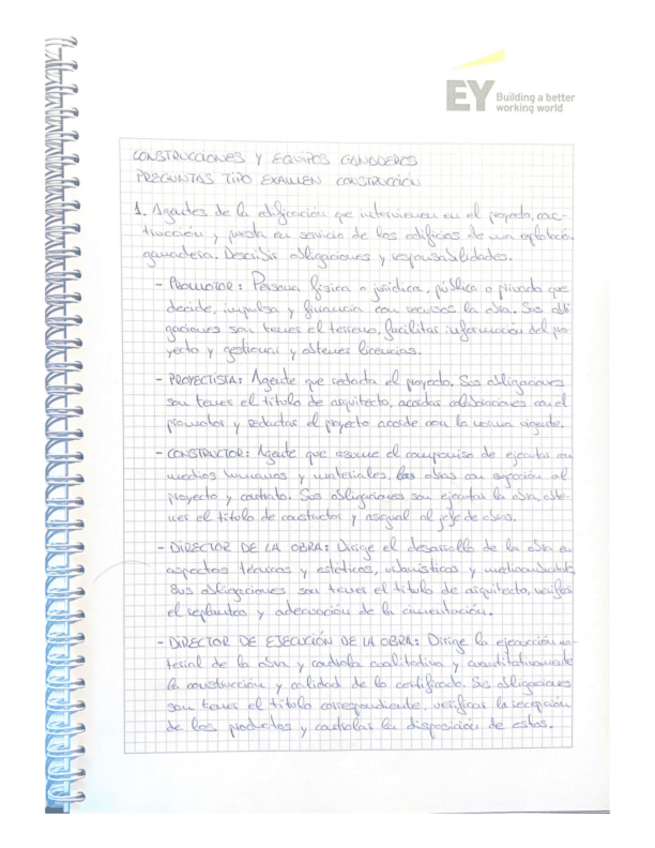 EY Building a better
working world
CONSTRUCCIONES Y EQUIPOS GANADEROS
PREGUNTAS TIPO EXAMEN CONSTRUCCIÓN
1. Agentes de la edificación que intervienen en el proyecto, cons-
trucción y puesta en servicio de los edificios de una explotación
ganadera. Describir obligaciones y responsabilidades.
- PROMOTOR: Persona física o jurídica, pública o privada que
decide, impulsa y financia con recursos la obra. Sus obli-
gaciones son tener el terreno, facilitar información del pro-
yecto y gestionar y obtener licencias.
- PROYECTISTA: Agente que redacta el proyecto. Sus obligaciones
son tener el título de arquitecto, acordar con el
promotor y redactar el proyecto acorde con la norma vigente.
- CONSTRUCTOR: Agente que asume el compromiso de ejecutar con
medios humanos y materiales, las obras con sujeción al
proyecto y contrato. Sus obligaciones son ejecutar la obra, obte-
ner el título de constructor y asignar al jefe de obras.
- DIRECTOR DE LA OBRA: Dirige el desarrollo de la obra en
aspectos técnicos y estéticos, urbanísticos y medioambientales.
Sus obligaciones son tener el título de arquitecto, verificar
el replanteo y adecuación de la cimentación.
- DIRECTOR DE EJECUCIÓN DE LA OBRA: Dirige la ejecución ma-
terial de la obra y controla cualitativa y cuantitativamente
la construcción y calidad de lo certificado. Sus obligaciones
son tener el título correspondiente, verificar la recepción
de los productos y controlar la disposición de estos.